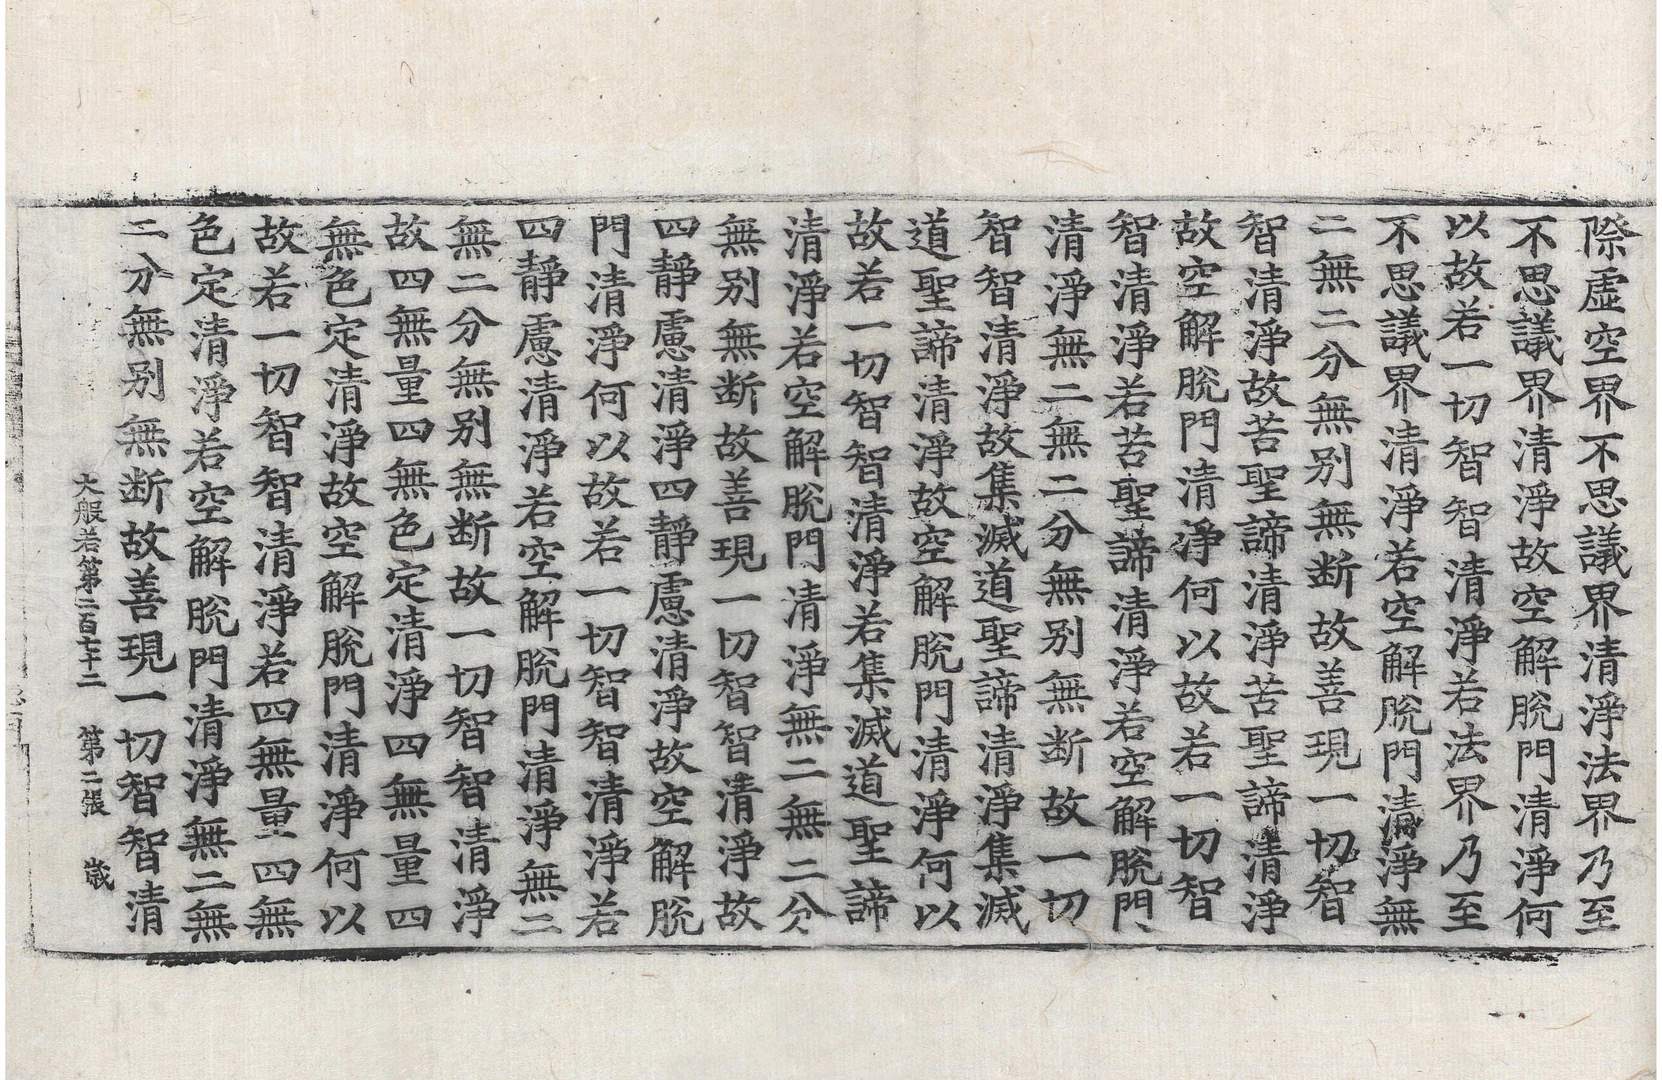 際虛空界不思議界清淨法界乃至
不思議界清淨故空解脫門清淨何
以故若一切智智清淨若法界乃至
不思議界清淨若空解脫門清淨無
二無二分無別無斷故善現一切智
智清淨故苦聖諦清淨苦聖諦清淨
故空解脫門清淨何以故若一切智
智清淨若苦聖諦清淨若空解脫門
清淨無二無二分無別無斷故一切
智智清淨故集滅道聖諦清淨集滅
道聖諦清淨故空解脫門清淨何以
故若一切智智清淨若集滅道聖諦
清淨若空解脫門清淨無二無二分
無別無斷故善現一切智智清淨故
四靜慮清淨四靜慮清淨故空解脫
門清淨何以故若一切智智清淨若
四靜慮清淨若空解脫門清淨無二
無二分無別無斷故一切智智清淨
故四無量四無色定清淨四無量四
無色定清淨故空解脫門清淨何以
故若一切智智清淨若四無量四無
色定清淨若空解脫門清淨無二無
二分無別無斷故善現一切智智清
大般若第二百七十二　第二張　歲